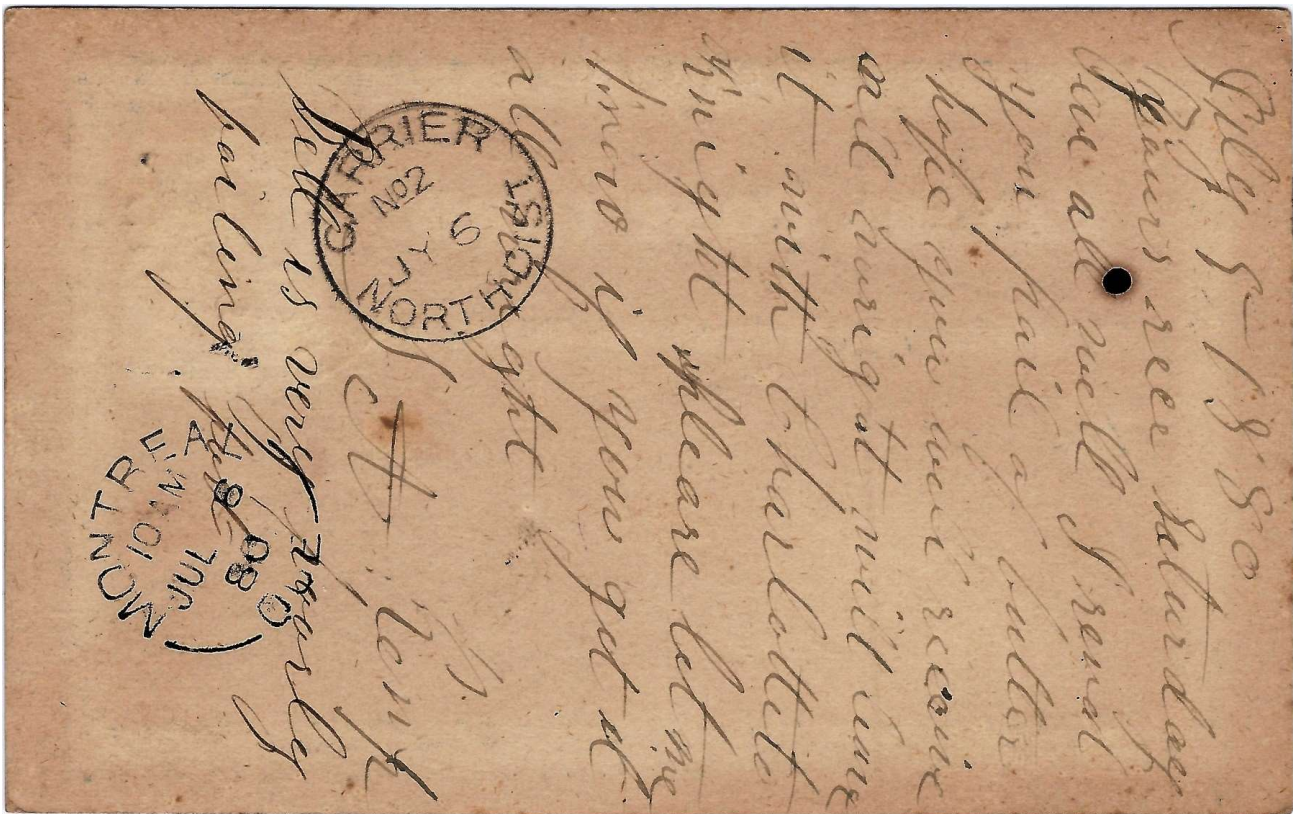 July 5 1880
yours rec Saturday
all well I send
you pail of butter
hope you will receive
all wright will leve
it with Charlotte
Knight please let me
know if you get it
all right
A.
Dell is very poorly
failing fast
CARRIER
No2
JY 6
NORTH DIST
MONTREAL
10 AM
JUL 6
80
Q